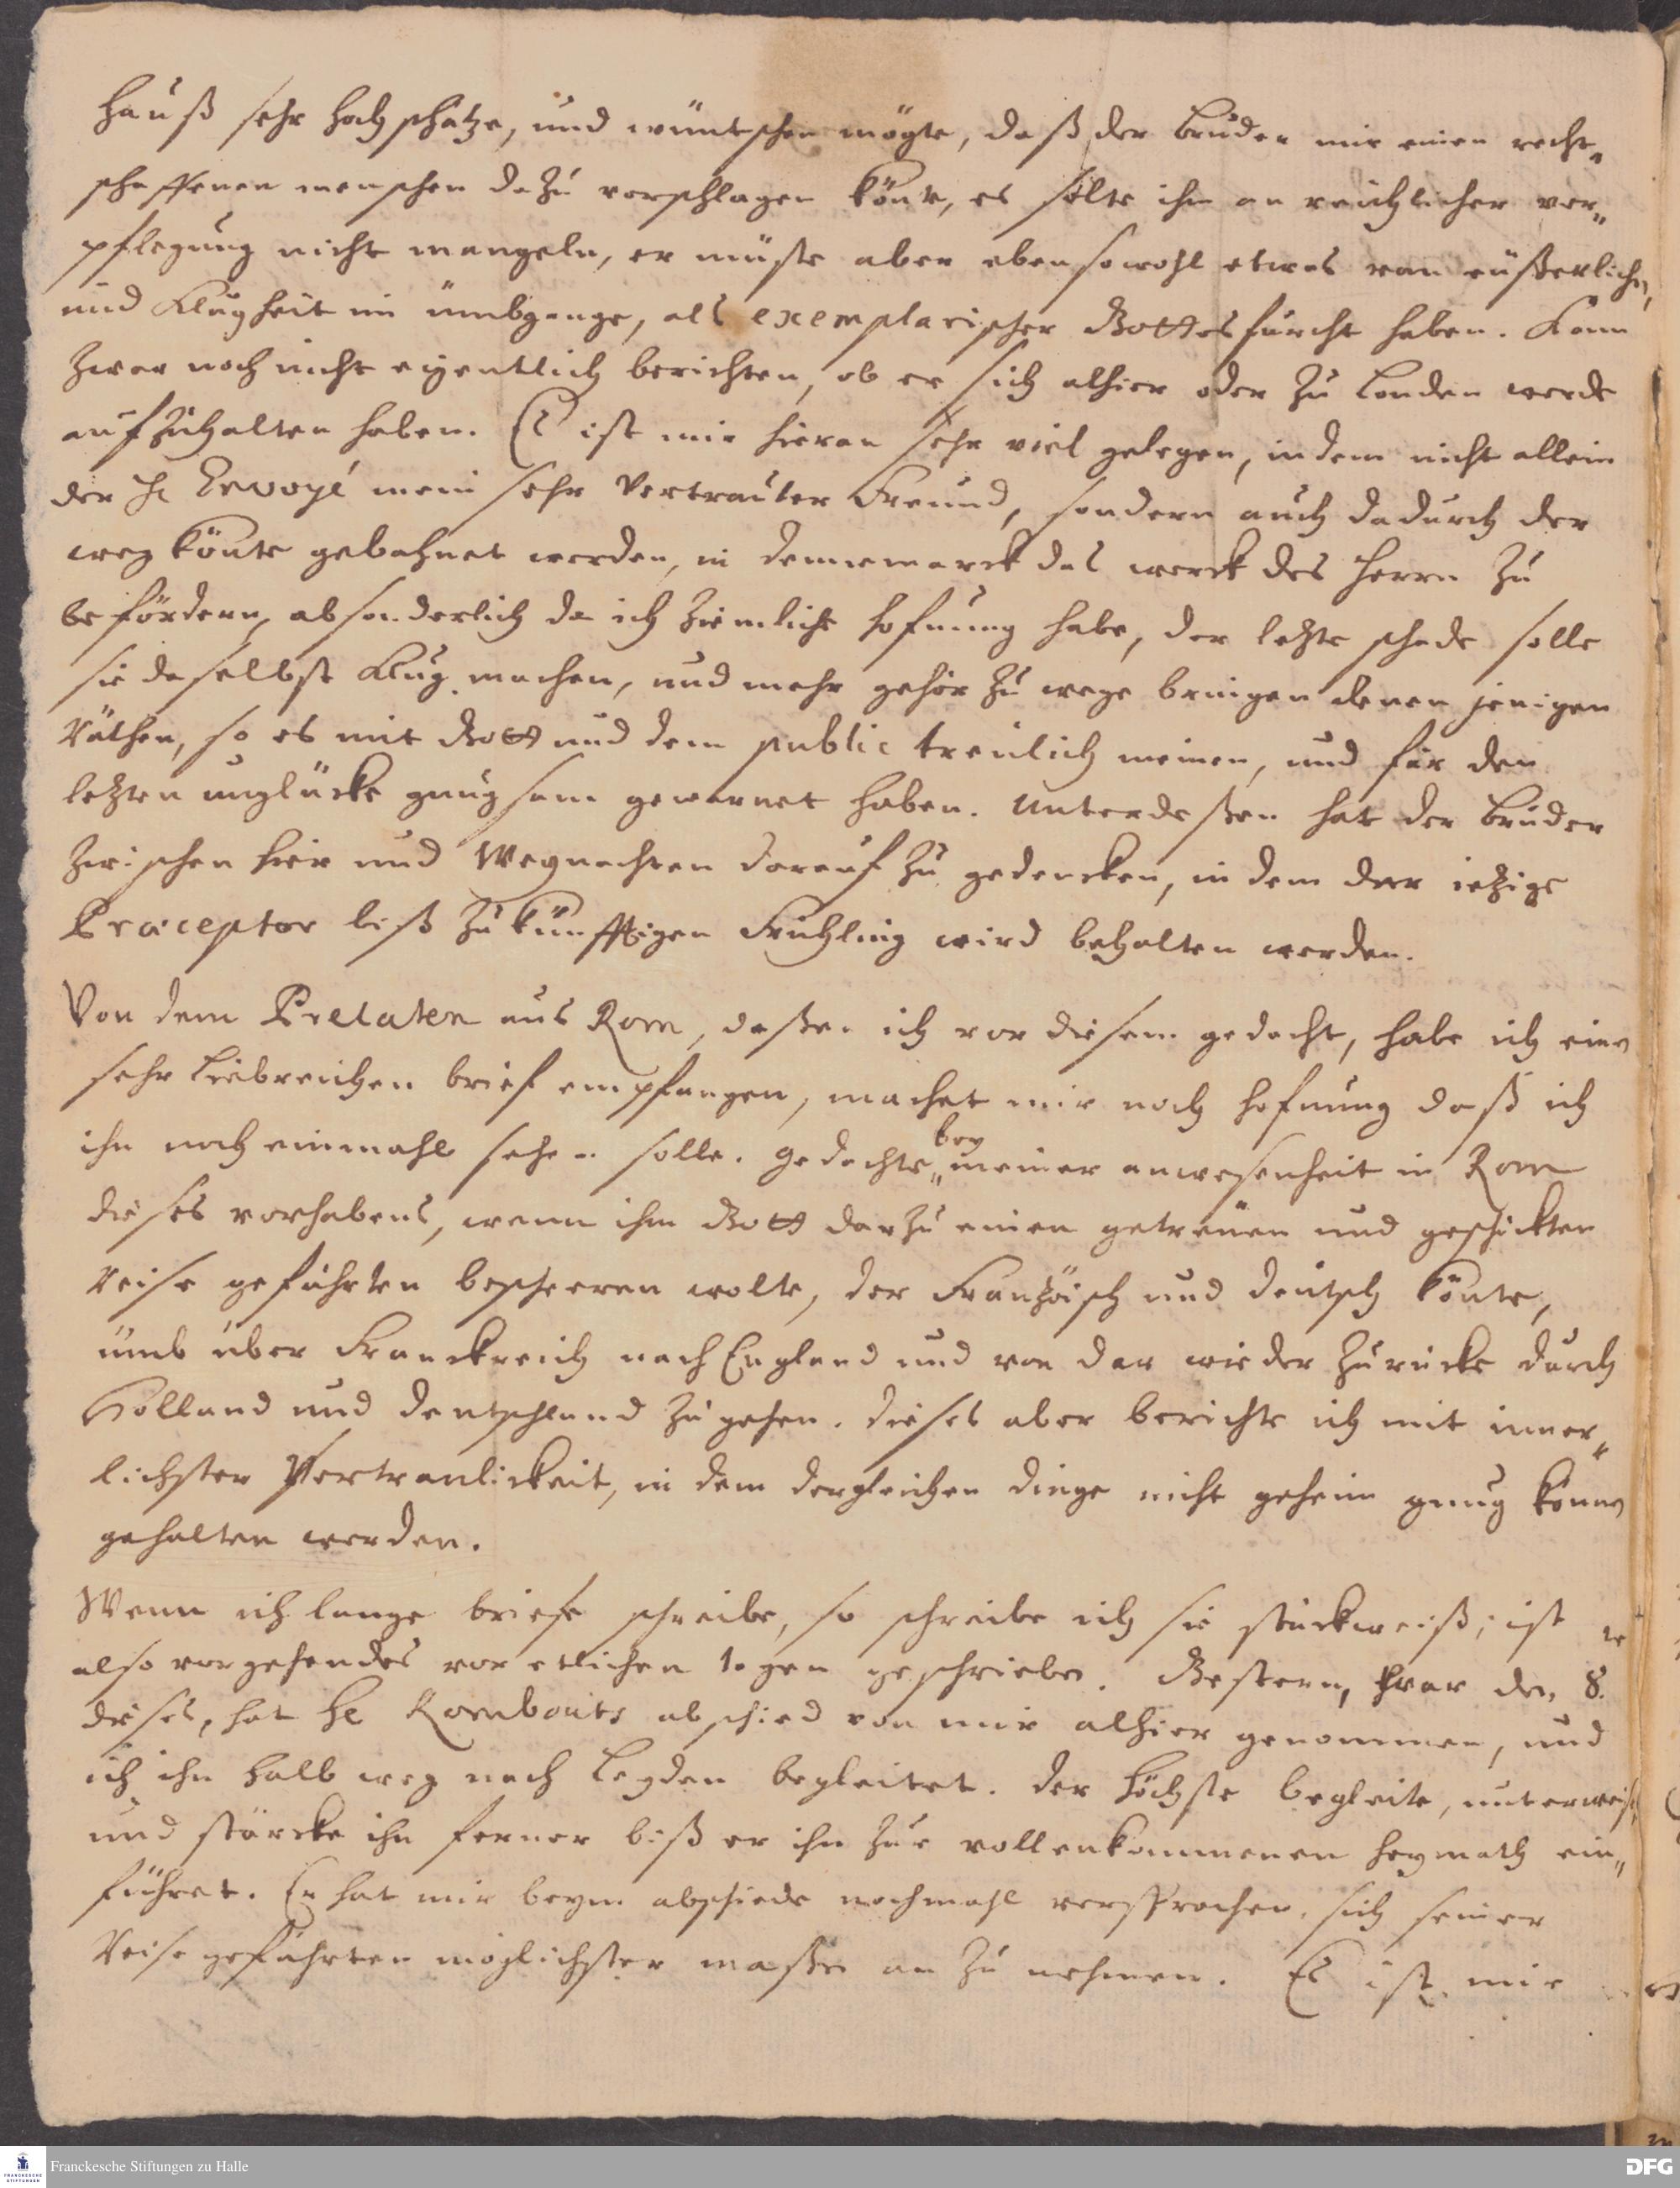 hauß sehr hoch schätze, und wüntschen mögte, daß der Bruder mir einen recht„
schaffenen menschen dazu vorschlagen könte, es solte ihm an reichlicher ver„
pflegung nicht mangeln, er müste aber eben sowohl etwas von eüßerlicher
und Klugheit im ümbgange, als exemplarischer Gottesfurcht haben. Kann
zwar noch nicht eigentlich berichten, ob er sich alhier oder zu Londen werde
aufzuhalten haben. Es ist mir hieran sehr viel gelegen, in dem nicht allein
der H. Envoyé mein sehr Vertrauter Freund, sondern auch dadurch der
weg könte gebahnet werden, in Dennemarck das werck des Herrn zu
befördern, absonderlich da ich ziemliche hofnung habe, der letzte schade solle
sie daselbst Klug machen, und mehr gehör zu wege bringen denen jenigen
Räthen, so es mit Gott und dem public treulich meinen, und für den
letzten unglücke gnugsam gewarnet haben. Unterdeßen hat der Bruder
zwischen hier und Weynachten darauf zu gedencken, in dem der ietzige
Præceptor biß zukünfftigen Frühling wird behalten werden.
Von dem Prelaten aus Rom, deßen ich vor diesem gedacht, habe ich einen
sehr Liebreichen brief empfangen, machet mir noch hofnung daß ich
ihn noch einmahl sehen solle. Gedachte bey meiner anwesenheit in Rom
dieses vorhabens, wenn ihm Gott darzu einen getreüen und geschickten
Reise gefährten bescheeren wolte, der Französisch und Deütsch könte,
ümb über Franckreich nach England und von dar wieder zurücke durch
Holland und Deutschland zu gehen. Dieses aber berichte ich mit inner„
lichster Vertraulickeit, in dem dergleichen dinge nicht geheim gnug können
gehalten werden.
Wenn ich lange briefe schreibe, so schreibe ich sie stückweiß; ist
also vorgehendes vor etlichen tagen geschrieben. Gestern, war den 8.
dieses, hat He Rombouts abschied von mir alhier genommen, und
ich ihn halb weg nach Leyden begleitet. Der höchste begleite, unterweise
und stärcke ihn ferner biß er ihn zur vollenkommenen heymath ein„
führet. Er hat mir beym abschiede nochmahl versprochen, sich seiner
Reise gefährten möglichster maßen an zu nehmen. Es ist mir
Franckesche Stiftungen zu Halle
FRANCKESCHE STIFTUNGEN
DFG